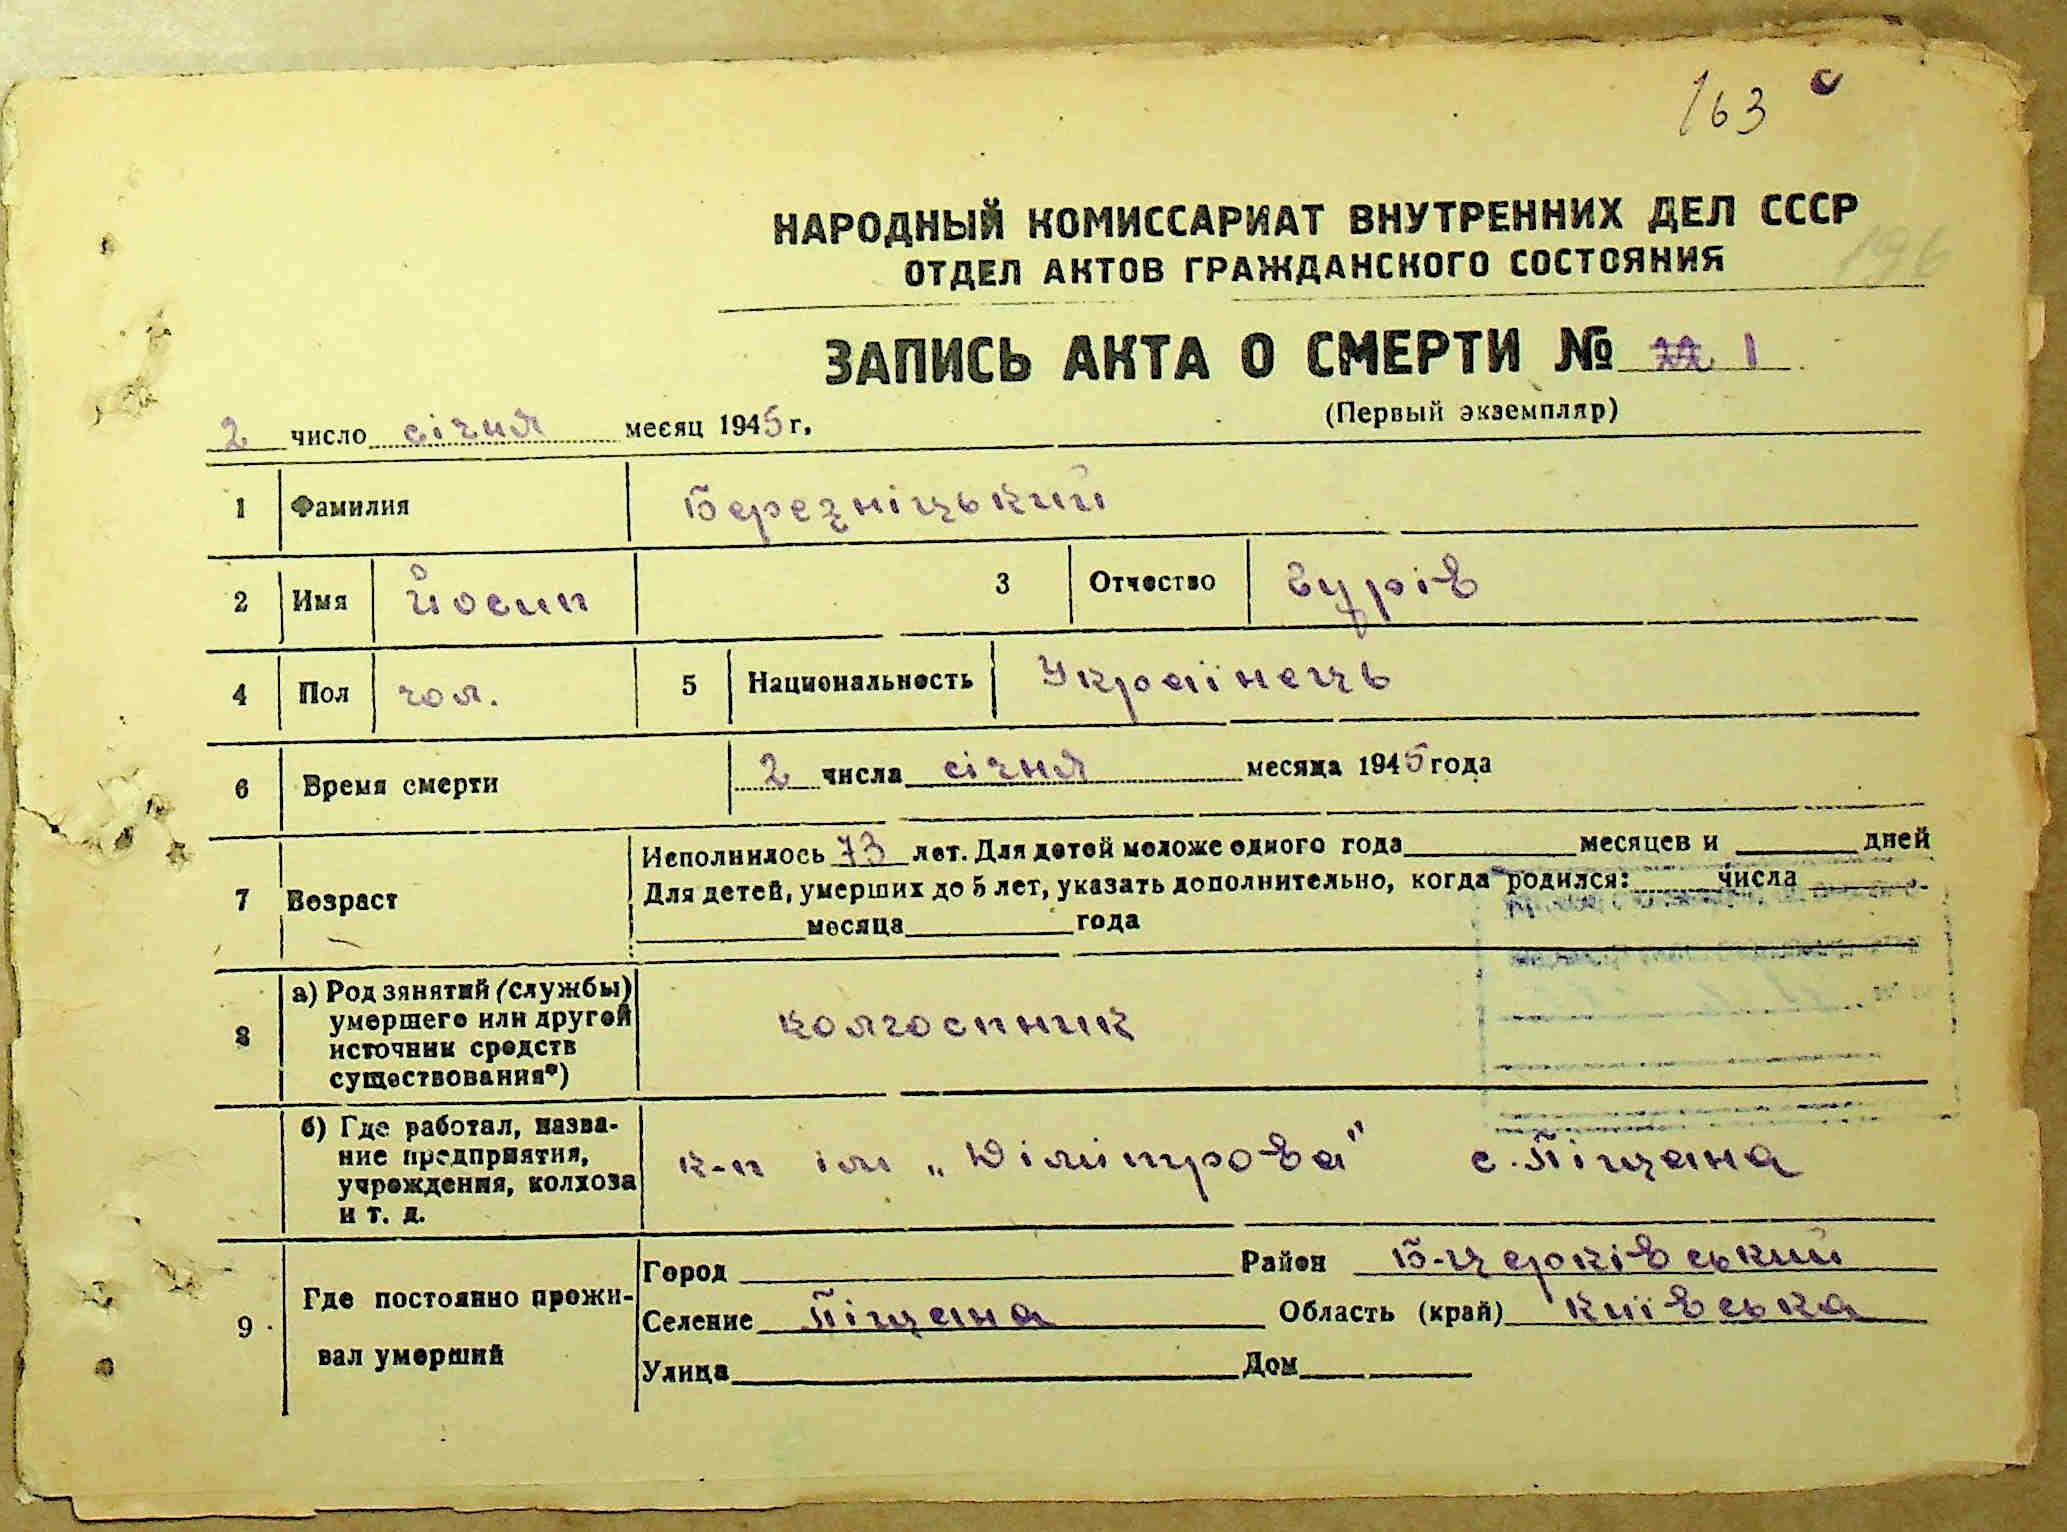 163
НАРОДНЫЙ КОМИССАРИАТ ВНУТРЕННИХ ДЕЛ СССР
ОТДЕЛ АКТОВ ГРАЖДАНСКОГО СОСТОЯНИЯ
196
ЗАПИСЬ АКТА О СМЕРТИ № 1
(Первый экземпляр)
2 число січня месяц 1945 г.
1 Фамилия Березніцький
2 Имя Йосип 3 Отчество Гурів
4 Пол чол. 5 Национальность Українець
6 Время смерти 2 числа січня месяца 1945 года
7 Возраст Исполнилось 73 лет. Для детей моложе одного года месяцев и дней
Для детей, умерших до 5 лет, указать дополнительно, когда родился: числа
месяца года
8 а) Род зянятий (службы) умершего или другой источник средств существования*) колгоспник
б) Где работал, название предприятия, учреждения, колхоза и т. д. к-п ім „Дімітрова" с. Піщана
9 Где постоянно проживал умерший Город Район Б-Церківський
Селение Піщана Область (край) Київська
Улица Дом